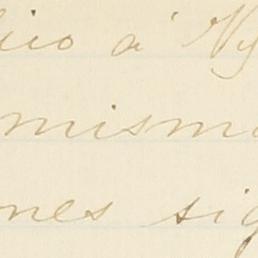 lico á Ny
misma
nes sig